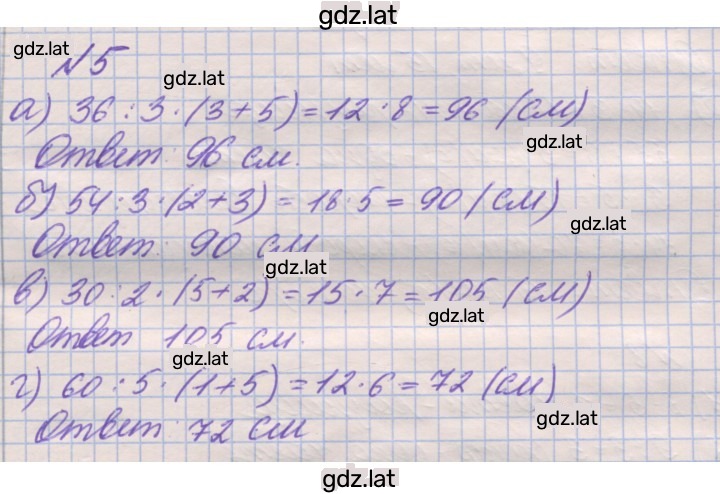 gdz.lat
gdz.lat
№5
gdz.lat
а) 36 : 3 · (3 + 5) = 12 · 8 = 96 (см)
gdz.lat
Ответ: 96 см.
б) 54 : 3 · (2 + 3) = 18 · 5 = 90 (см)
gdz.lat
Ответ: 90 см
gdz.lat
в) 30 : 2 · (5 + 2) = 15 · 7 = 105 (см)
gdz.lat
Ответ 105 см.
gdz.lat
г) 60 : 5 · (1 + 5) = 12 · 6 = 72 (см)
gdz.lat
Ответ: 72 см
gdz.lat